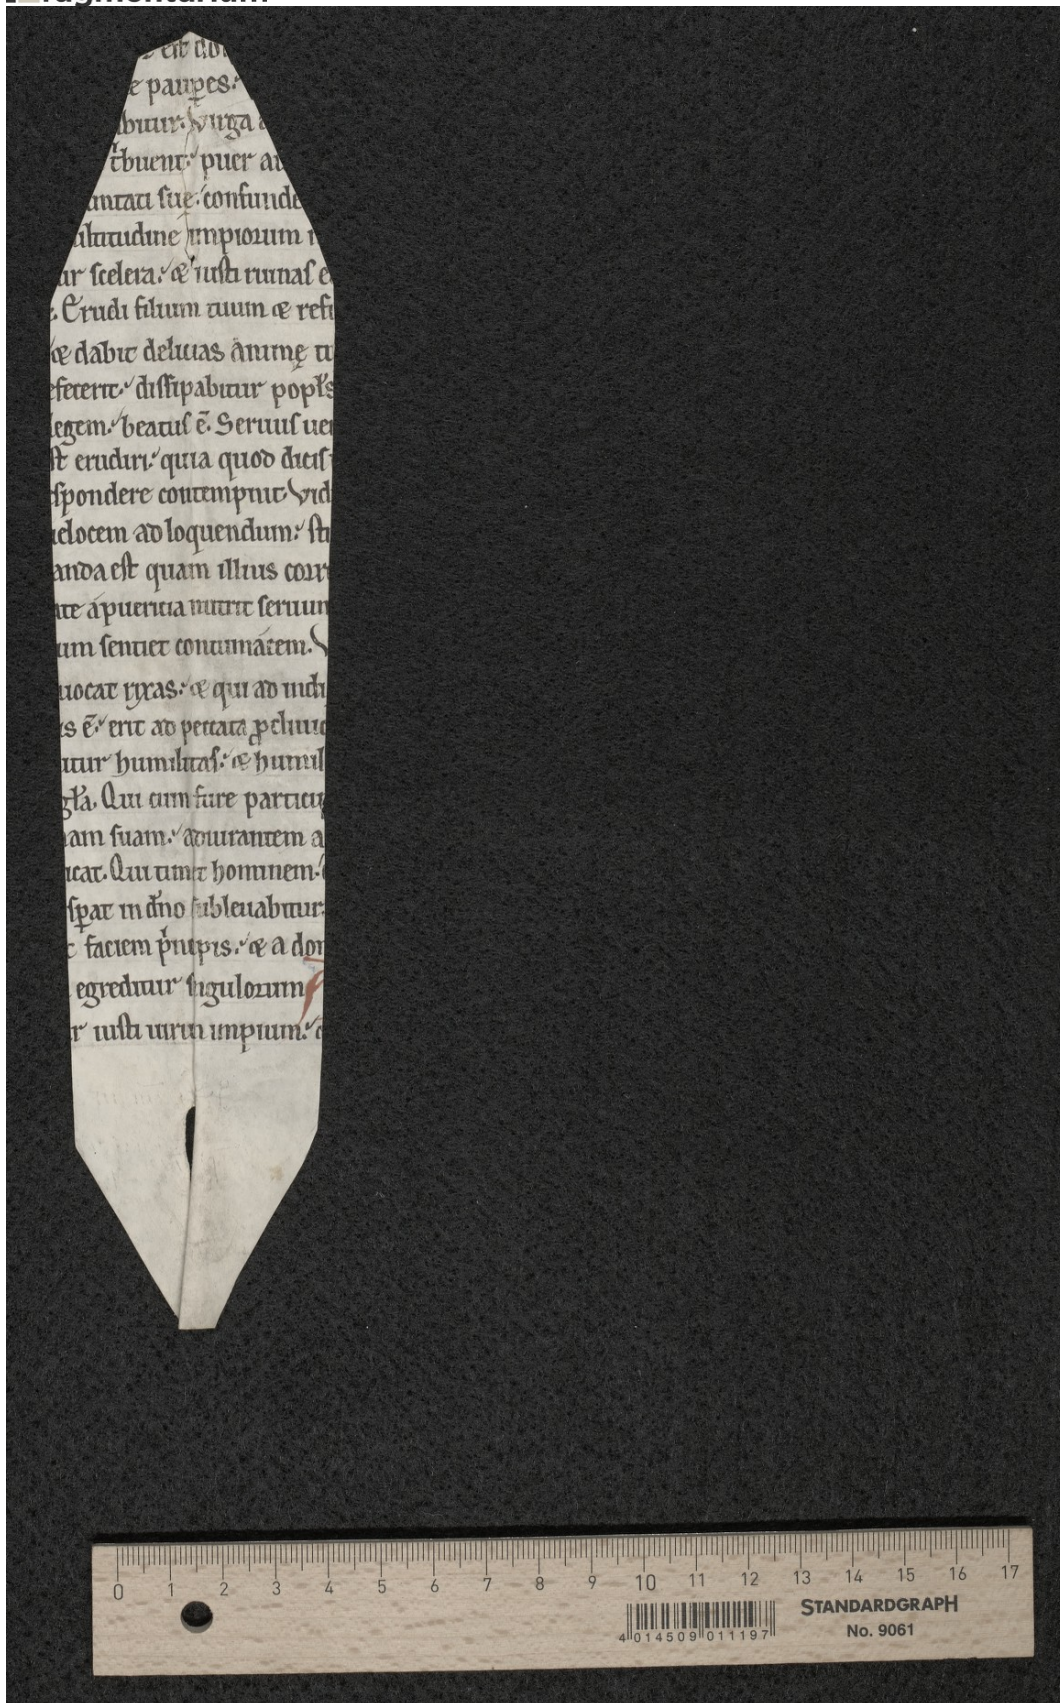 Fragmentarium
e paup̲es:
bitur. Virga a
t͛buent: puer au
untati sue: confunde
ultitudine impiorum
ur scelera: & iusti ruinas e
. Erudi filium tuum & refr
& dabit delicias animę tu
efecerit: dissipabitur popl's
legem: beatus ē. Seruus uer
st erudiri: quia quod dicis
spondere contempnit. Vid
uelocem ad loquendum: stu
anda est quam illius corre
ate a pueritia nutrit seruum
um sentiet contumacem. V
uocat rixas: & qui ad indi
is ē: erit ad peccata ꝓcliuio
itur humilitas: & humil
gła. Qui cum fure particip
am suam: adiurantem a
icat. Qui timet hominem:
sꝑat in dño subleuabitur.
t faciem pͥncipis: & a dom
egreditur singulorum
r iusti uirum impium: &
0 1 2 3 4 5 6 7 8 9 10 11 12 13 14 15 16 17
STANDARDGRAPH
No. 9061
4 014509 011197